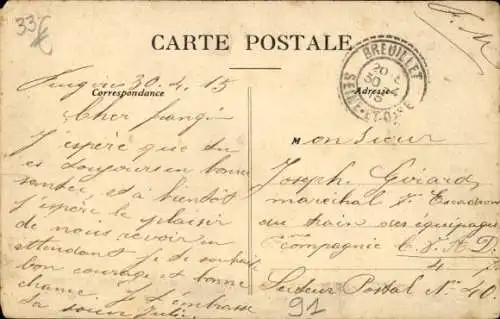 33
F. M
CARTE POSTALE
BREUILLET
20
30 4
15
SEINE-ET-OISE
30.4.15
Correspondance
Adresse
Cher
J'espère que tu
es toujours en bonne
santée et à bientôt
j'espère le plaisir
de nous revoir en
attendant Je te souhaite
bon courage et bonne
chance. Je t'embrasse
Ta soeur Julie
Monsieur
Joseph Girard
maréchal d'Escadron
du train des équipages
compagnie C. V. A. D.
4
Secteur Postal No 40
91